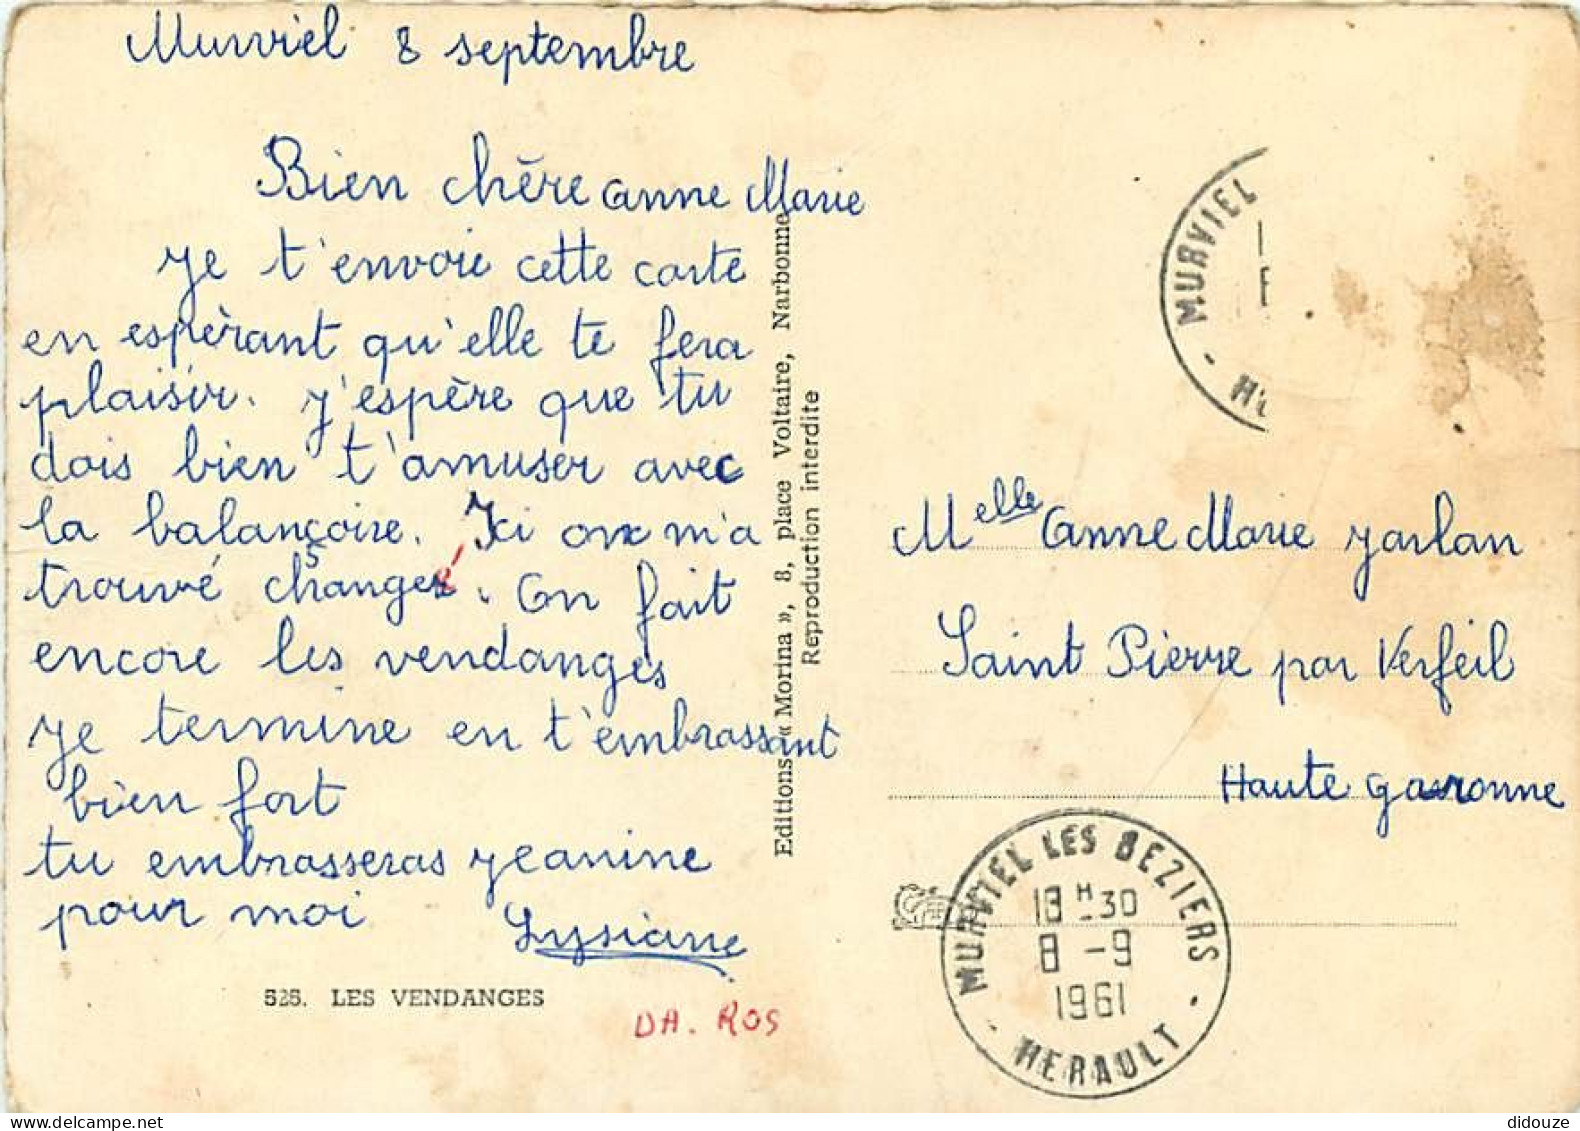 Murviel 8 septembre
Bien chère Anne Marie
Je t'envoie cette carte
en espèrant qu'elle te fera
plaisir. J'espère que tu
dois bien t'amuser avec
la balançoire. Ici on m'a
trouvé changé. On fait
encore les vendanges
Je termine en t'embrassant
bien fort
tu embrasseras Jeanine
pour moi
Lysiane
526. LES VENDANGES
DA. ROS
Editions « Morina », 8, place Voltaire, Narbonne
Reproduction interdite
MURVIEL
Melle Anne Marie Jarlan
Saint Pierre par Verfeil
Haute Garonne
MURVIEL LES BEZIERS
18H30
8 -9
1961
- HERAULT -
didouze